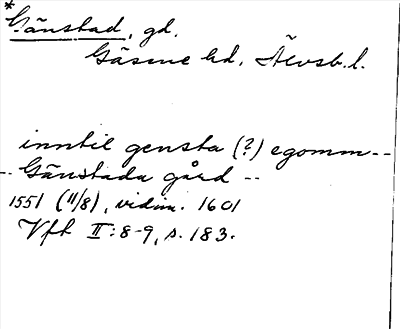 *Gänstad, gd.
Gäsene hd, Älvsb. l.
inntil gensta (?) egomm --
-- Gänstada gård --
1551 (11/8), vidim. 1601
Vfh II:8-9, s. 183.